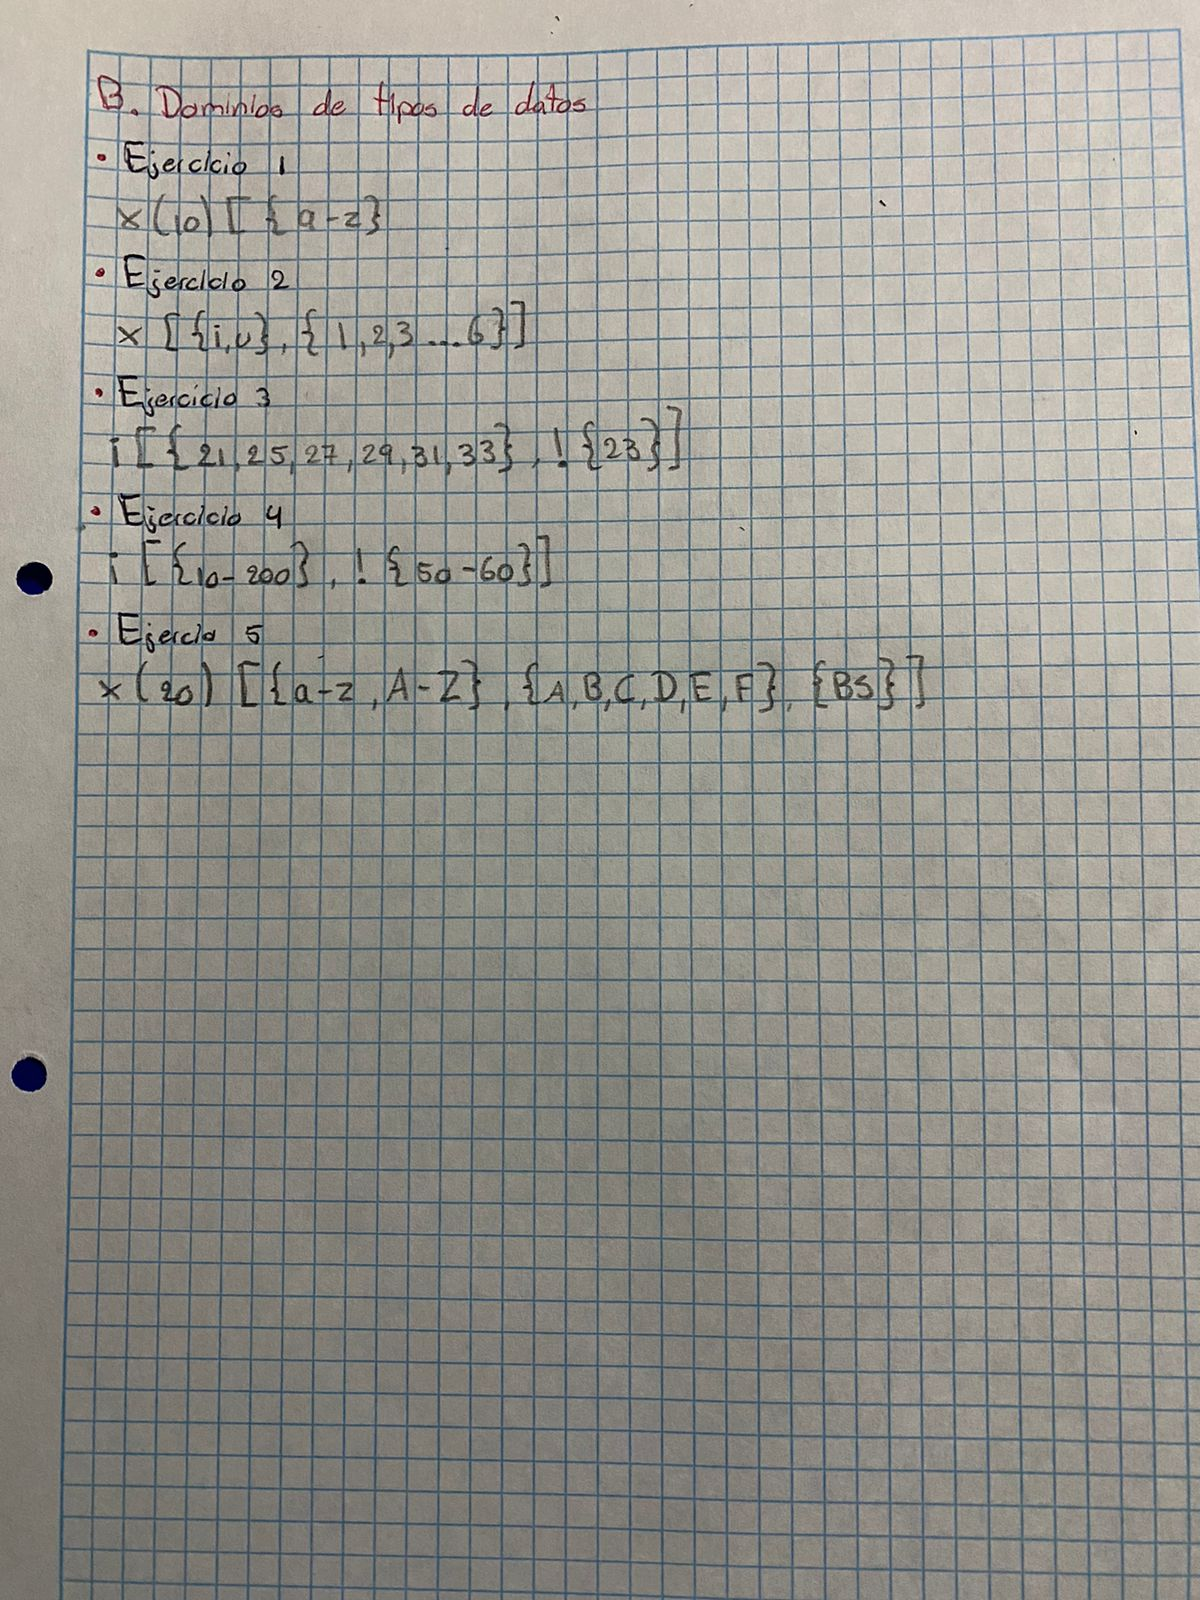 B. Dominios de tipos de datos
• Ejercicio 1
x(10) [ {a-z}
• Ejercicio 2
x [{i,u}, {1,2,3...6}]
• Ejercicio 3
i [{21,25,27,29,31,33}, !{23}]
• Ejercicio 4
i [{10-200}, !{50-60}]
• Ejercio 5
x (20) [{a-z, A-Z}, {A,B,C,D,E,F}, {BS}]